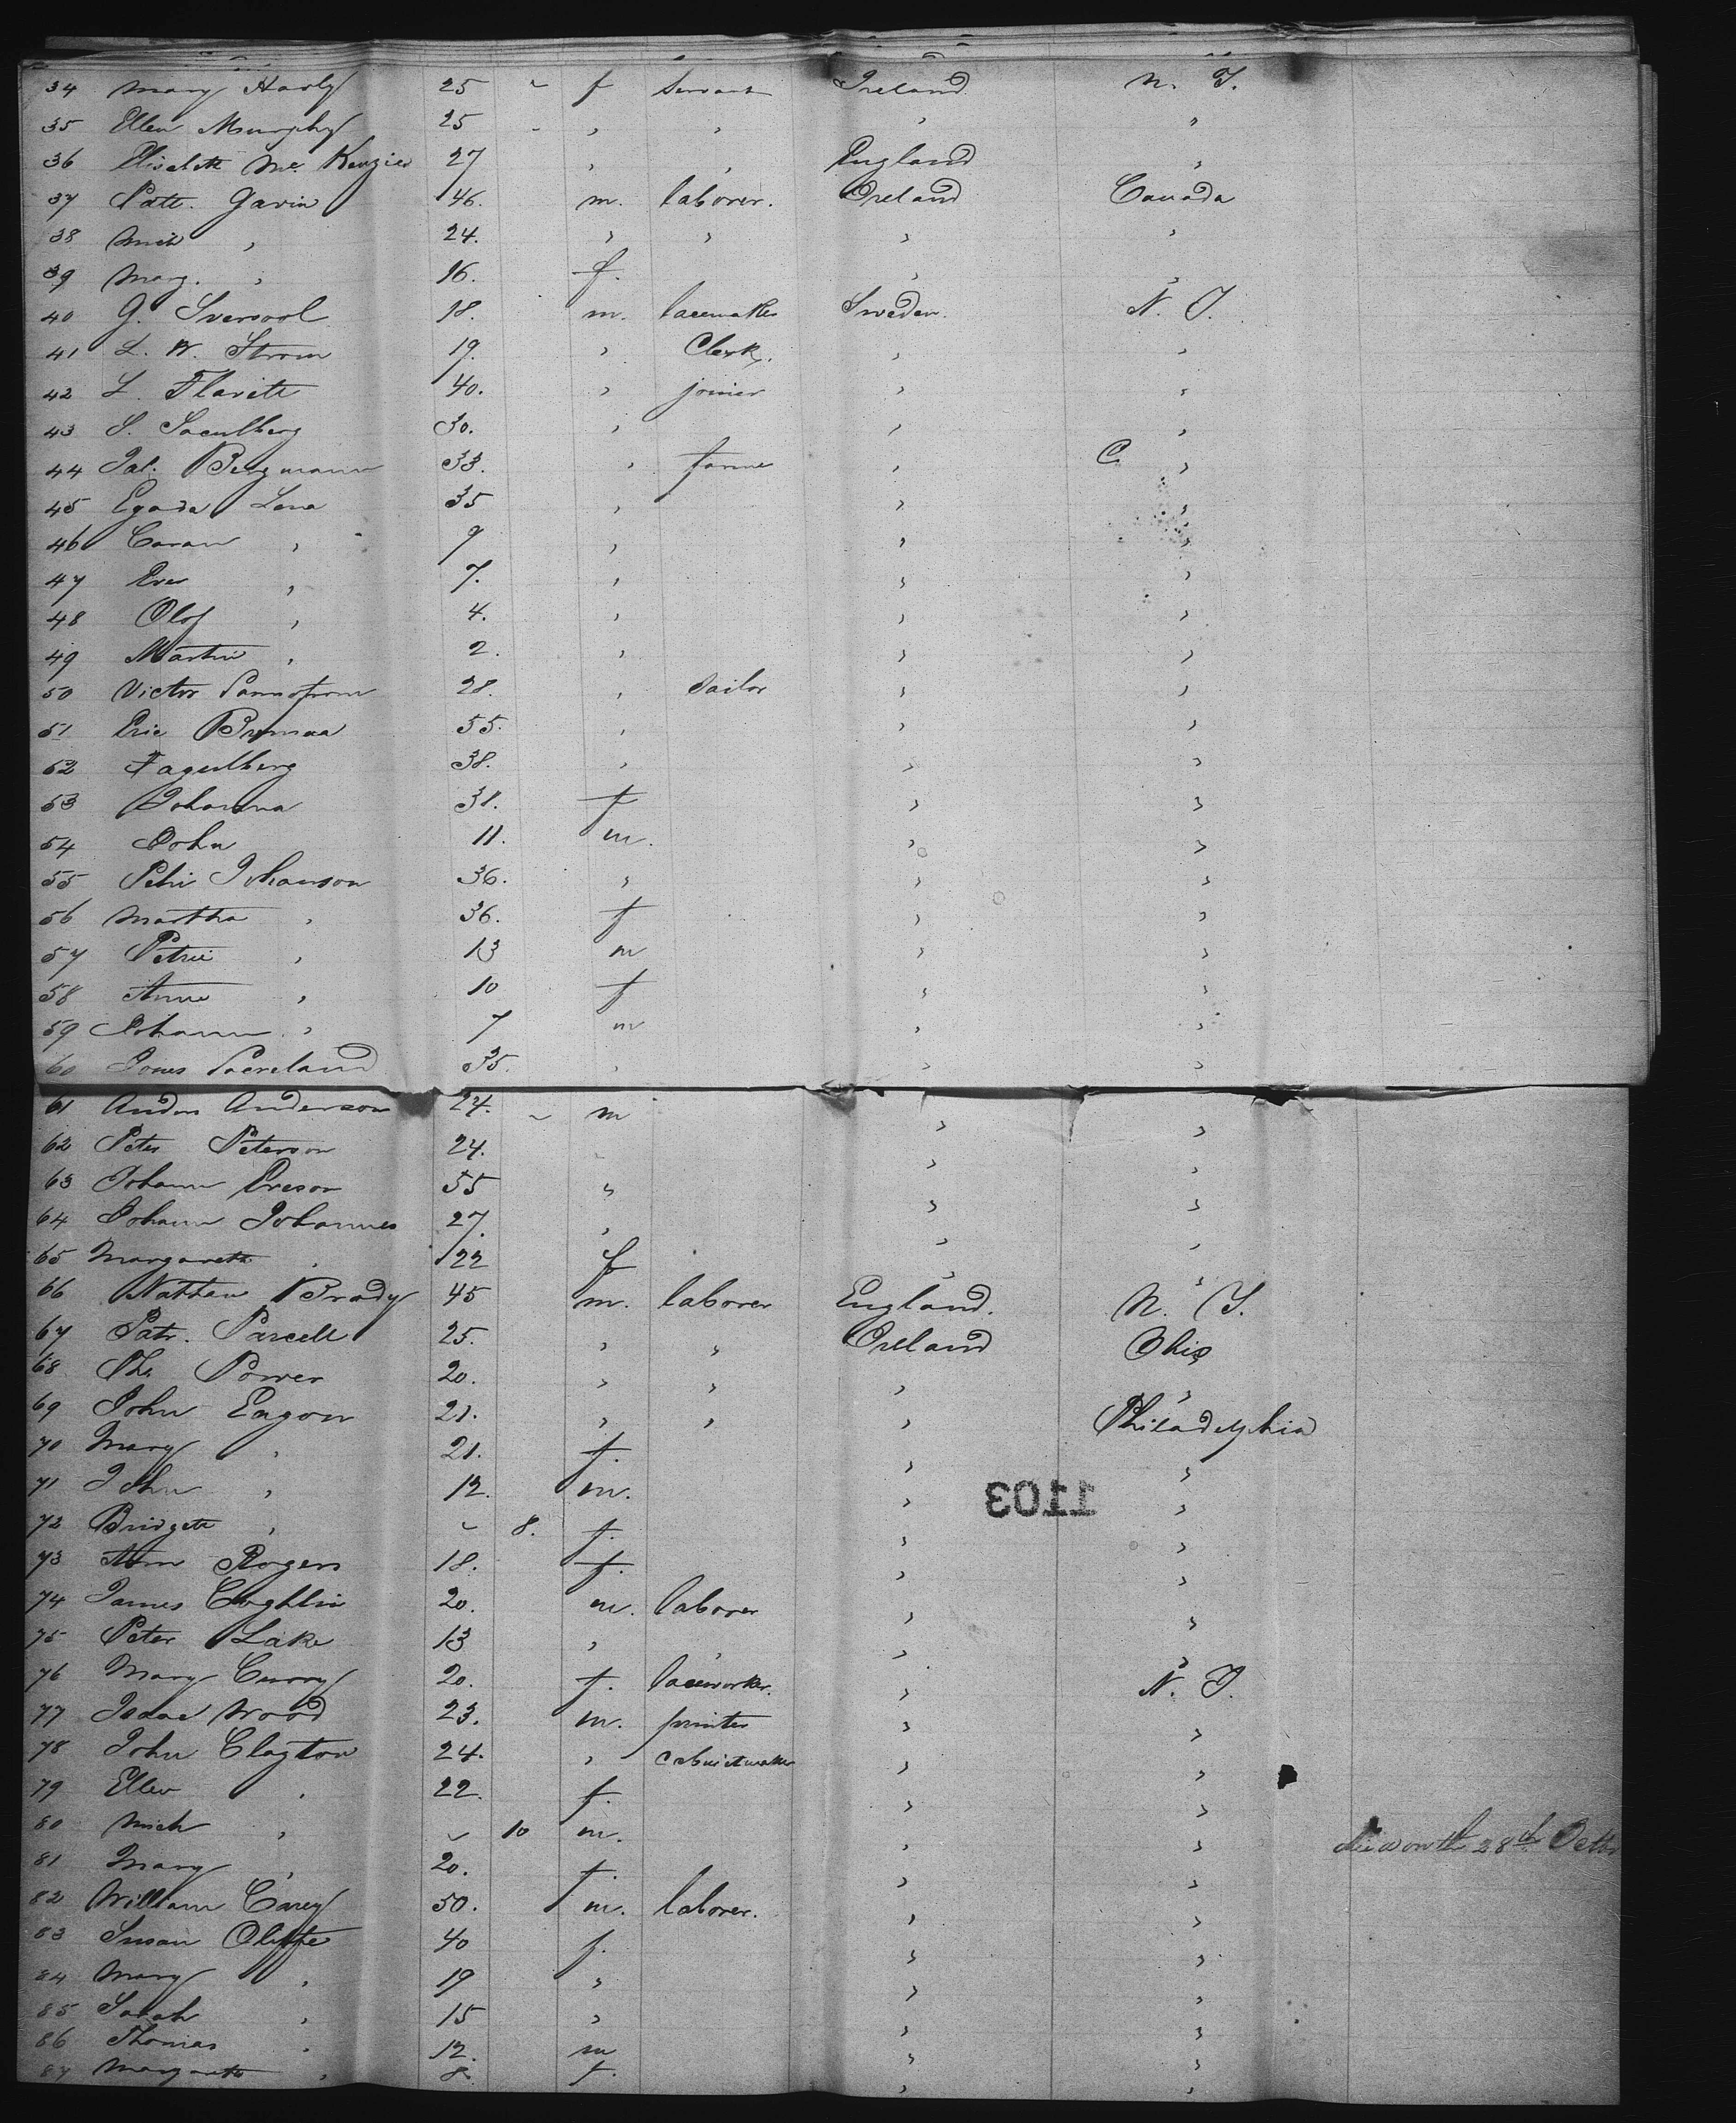 34 Mary Harly 25 ~ f Servant Ireland N. Y.
35 Ellen Murphy 25 - " " " "
36 Elisabeth Mc. Kenzies 27 " " England "
37 Patt. Gavin 46. m. laborer. Ireland Canada
38 Mich " 24. " " " "
39 Marg. " 16. f. " "
40 G. 18. m. lacemaker Sweden. N. Y.
41 L. W. Strom 19. " Clerk. " "
42 L. Flavitt 40. " joiner " "
43 S. 30. " " "
44 Bergmann 33. " farme " C. "
45 Lena 35 " " "
46 " 9 " " "
47 " 7. " " "
48 Olof " 4. " " "
49 Martin " 2. " " "
50 Victor 28. " Sailor " "
51 Eric 55. " " "
52 Fagulberg 38. " " "
53 Johanna 31. f " "
54 John 11. m. " "
55 Petri Johanson 36. " " "
56 Martha " 36. f " "
57 Petrie " 13 m " "
58 Anne " 10 f " "
59 Johann " 7 m " "
60 Jones 35. " " "
61 Anders Anderson 24. ~ m " "
62 Peter Peterson 24. " " "
63 Johann 55 " " "
64 Johann Johannes 27. " " "
65 Margareth " 22 f " "
66 Nathan Brady 45 m. laborer England. N. Y.
67 Patr. Parcell 25. " " Ireland Ohio
68 Th. Power 20. " " " "
69 John Eagon 21. " " " Philadelphia
70 Mary " 21. f. " "
71 John " 12. m. " "
1103
72 Bridgett " ~ 8. f. " "
73 Ann Rogers 18. f. " "
74 James Coghlin 20. m. laborer " "
75 Peter Lake 13 " " " "
76 Mary Curry 20. f. laceworker. " N. Y.
77 Isaac Wood 23. m. printer " "
78 John Clayton 24. " cabinetmaker " "
79 Ellen " 22. f. " "
80 Mich " ~ 10 m. " " 28th Octb
81 Mary " 20. f. " "
82 William Carey 50. m. laborer. " "
83 Susan Oliffe 40 f. " "
84 Mary " 19 " " "
85 Sarah " 15 " " "
86 Thomas " 12. m " "
87 Margareth " 8. f. " "